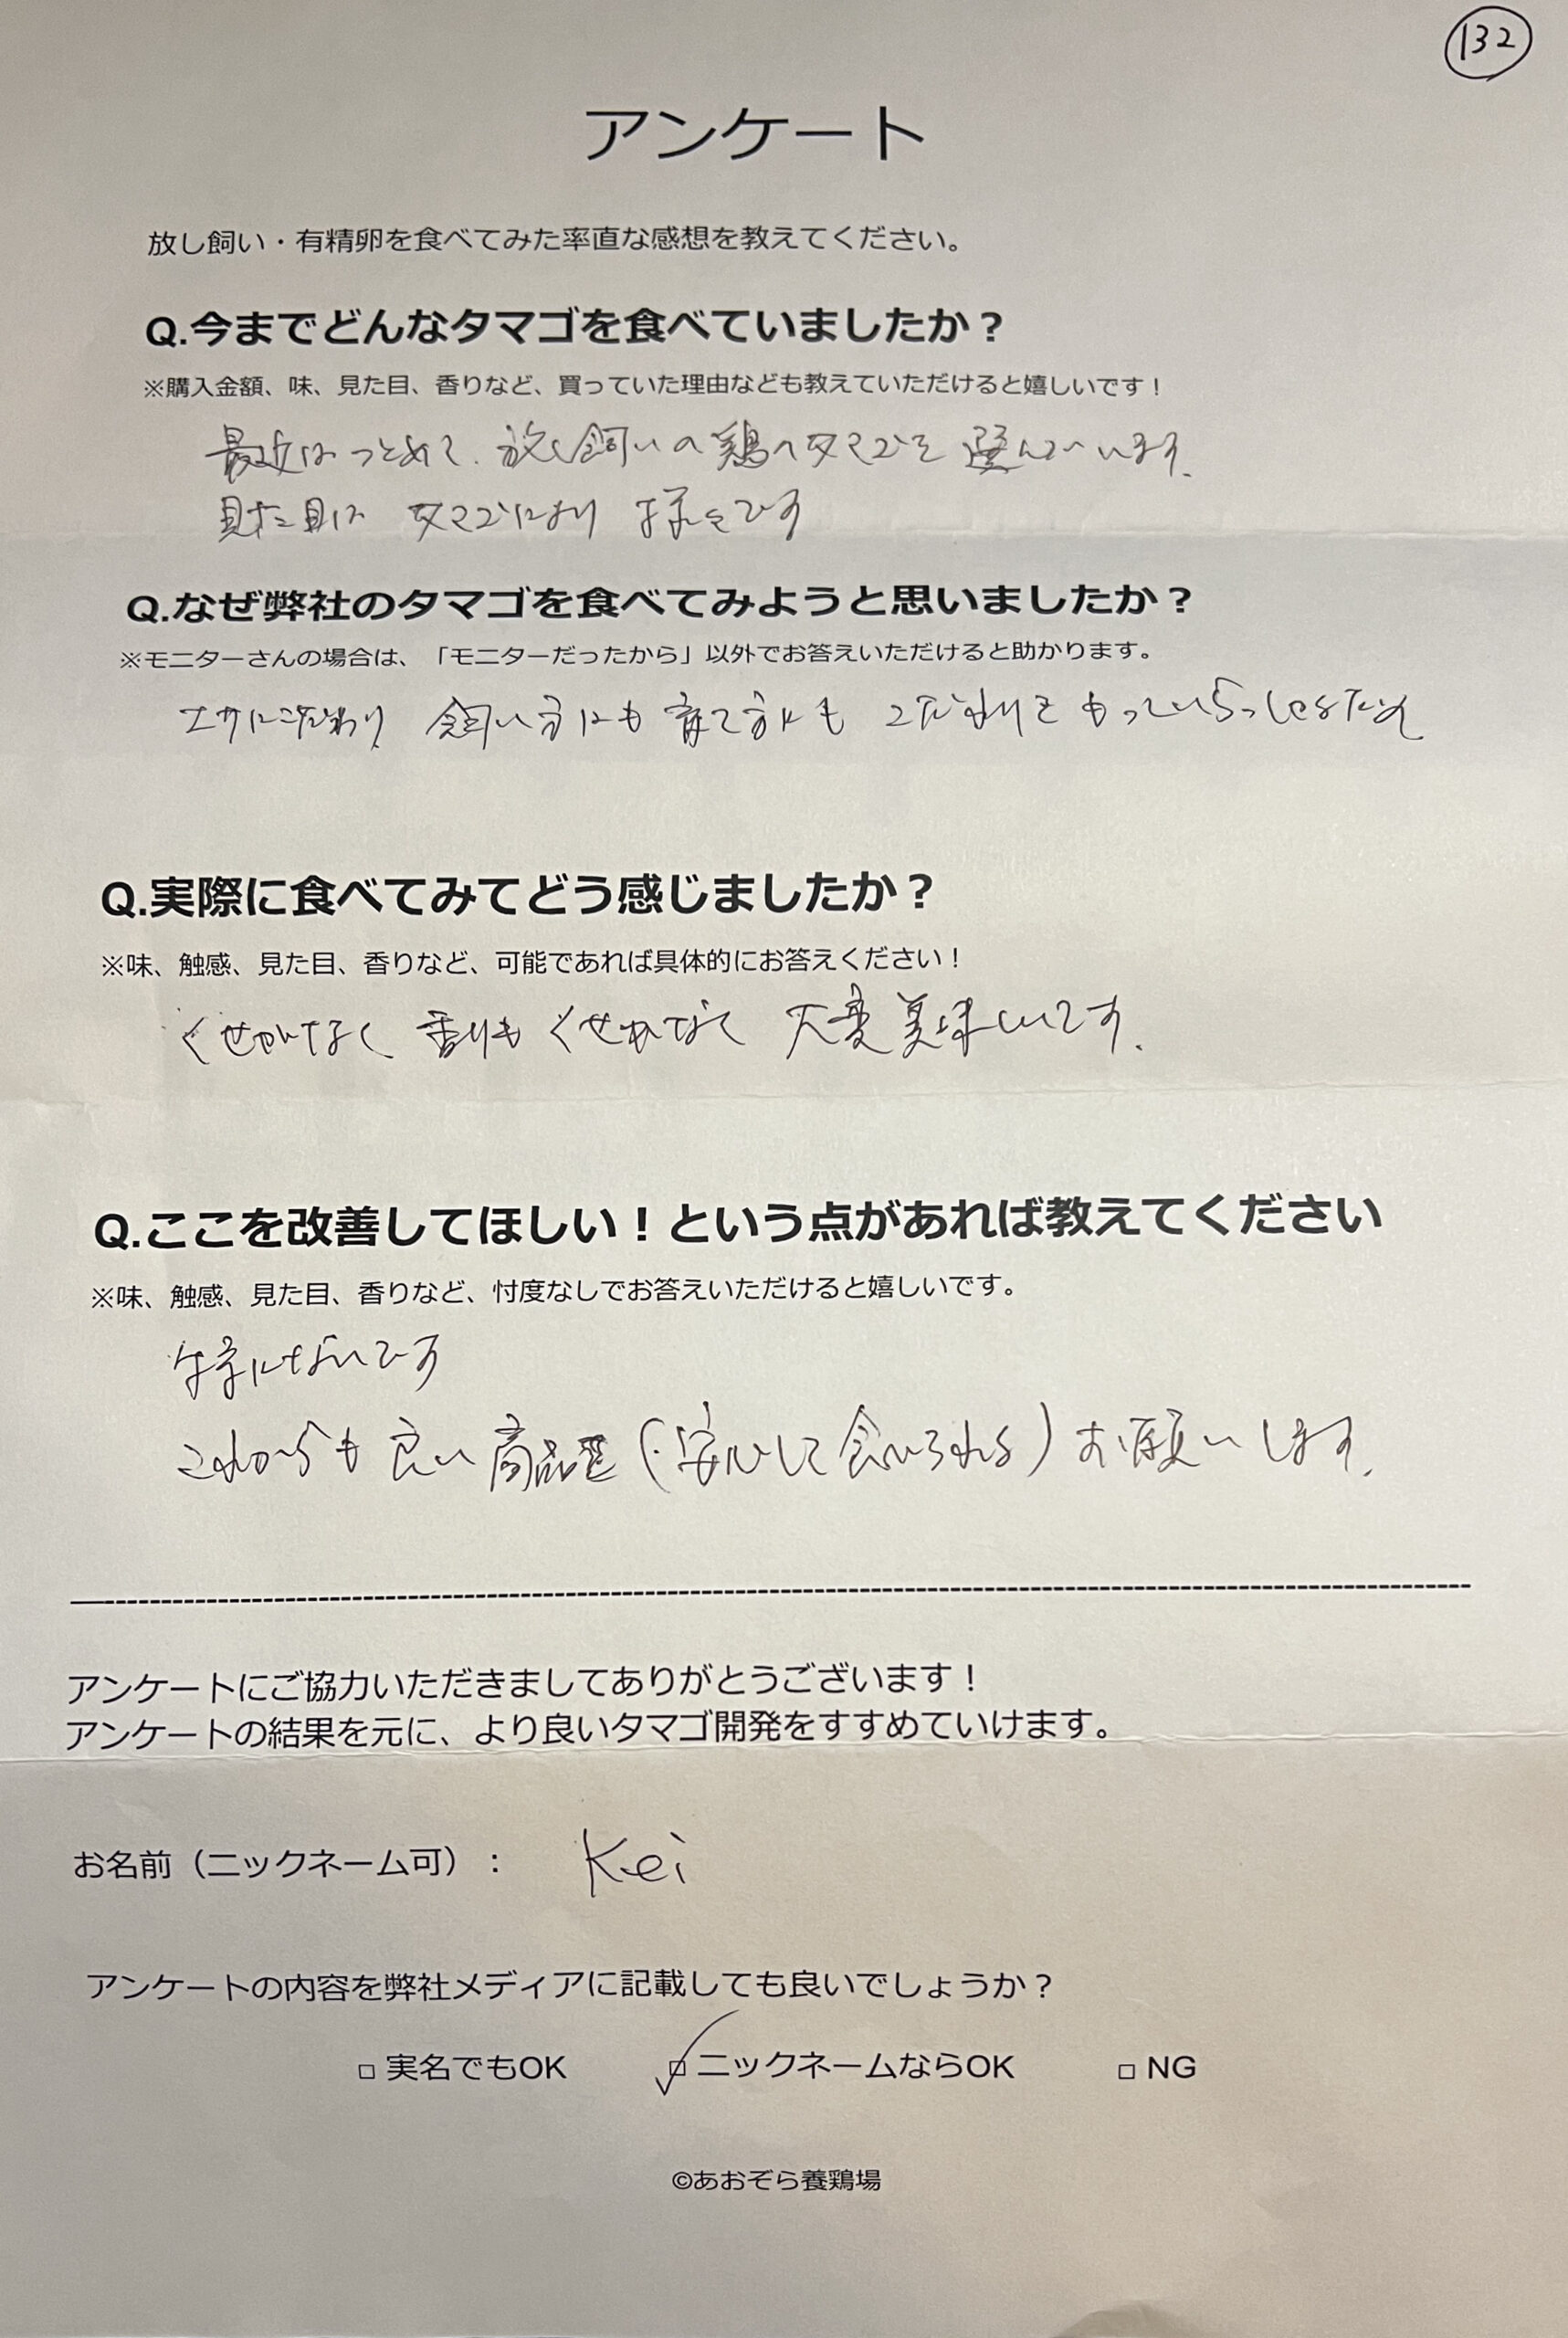 132
アンケート
放し飼い・有精卵を食べてみた率直な感想を教えてください。
Q.今までどんなタマゴを食べていましたか？
※購入金額、味、見た目、香りなど、買っていた理由なども教えていただけると嬉しいです！
最近はつとめて、放し飼いの鶏のタマゴを選んでいます。
見た目は タマゴにより 様々です
Q.なぜ弊社のタマゴを食べてみようと思いましたか？
※モニターさんの場合は、「モニターだったから」以外でお答えいただけると助かります。
エサにこだわり 飼い方にも育て方にも こだわりをもっていらっしゃるため
Q.実際に食べてみてどう感じましたか？
※味、触感、見た目、香りなど、可能であれば具体的にお答えください！
くせがなく 香りも くせがなくて 大変美味しいです。
Q.ここを改善してほしい！という点があれば教えてください
※味、触感、見た目、香りなど、忖度なしでお答えいただけると嬉しいです。
特にないです
これからも 良い 商品を（安心して食べられる）お願いします。
アンケートにご協力いただきましてありがとうございます！
アンケートの結果を元に、より良いタマゴ開発をすすめていけます。
お名前（ニックネーム可）： Kei
アンケートの内容を弊社メディアに記載しても良いでしょうか？
□ 実名でもOK ☑ ニックネームならOK □ NG
©あおぞら養鶏場